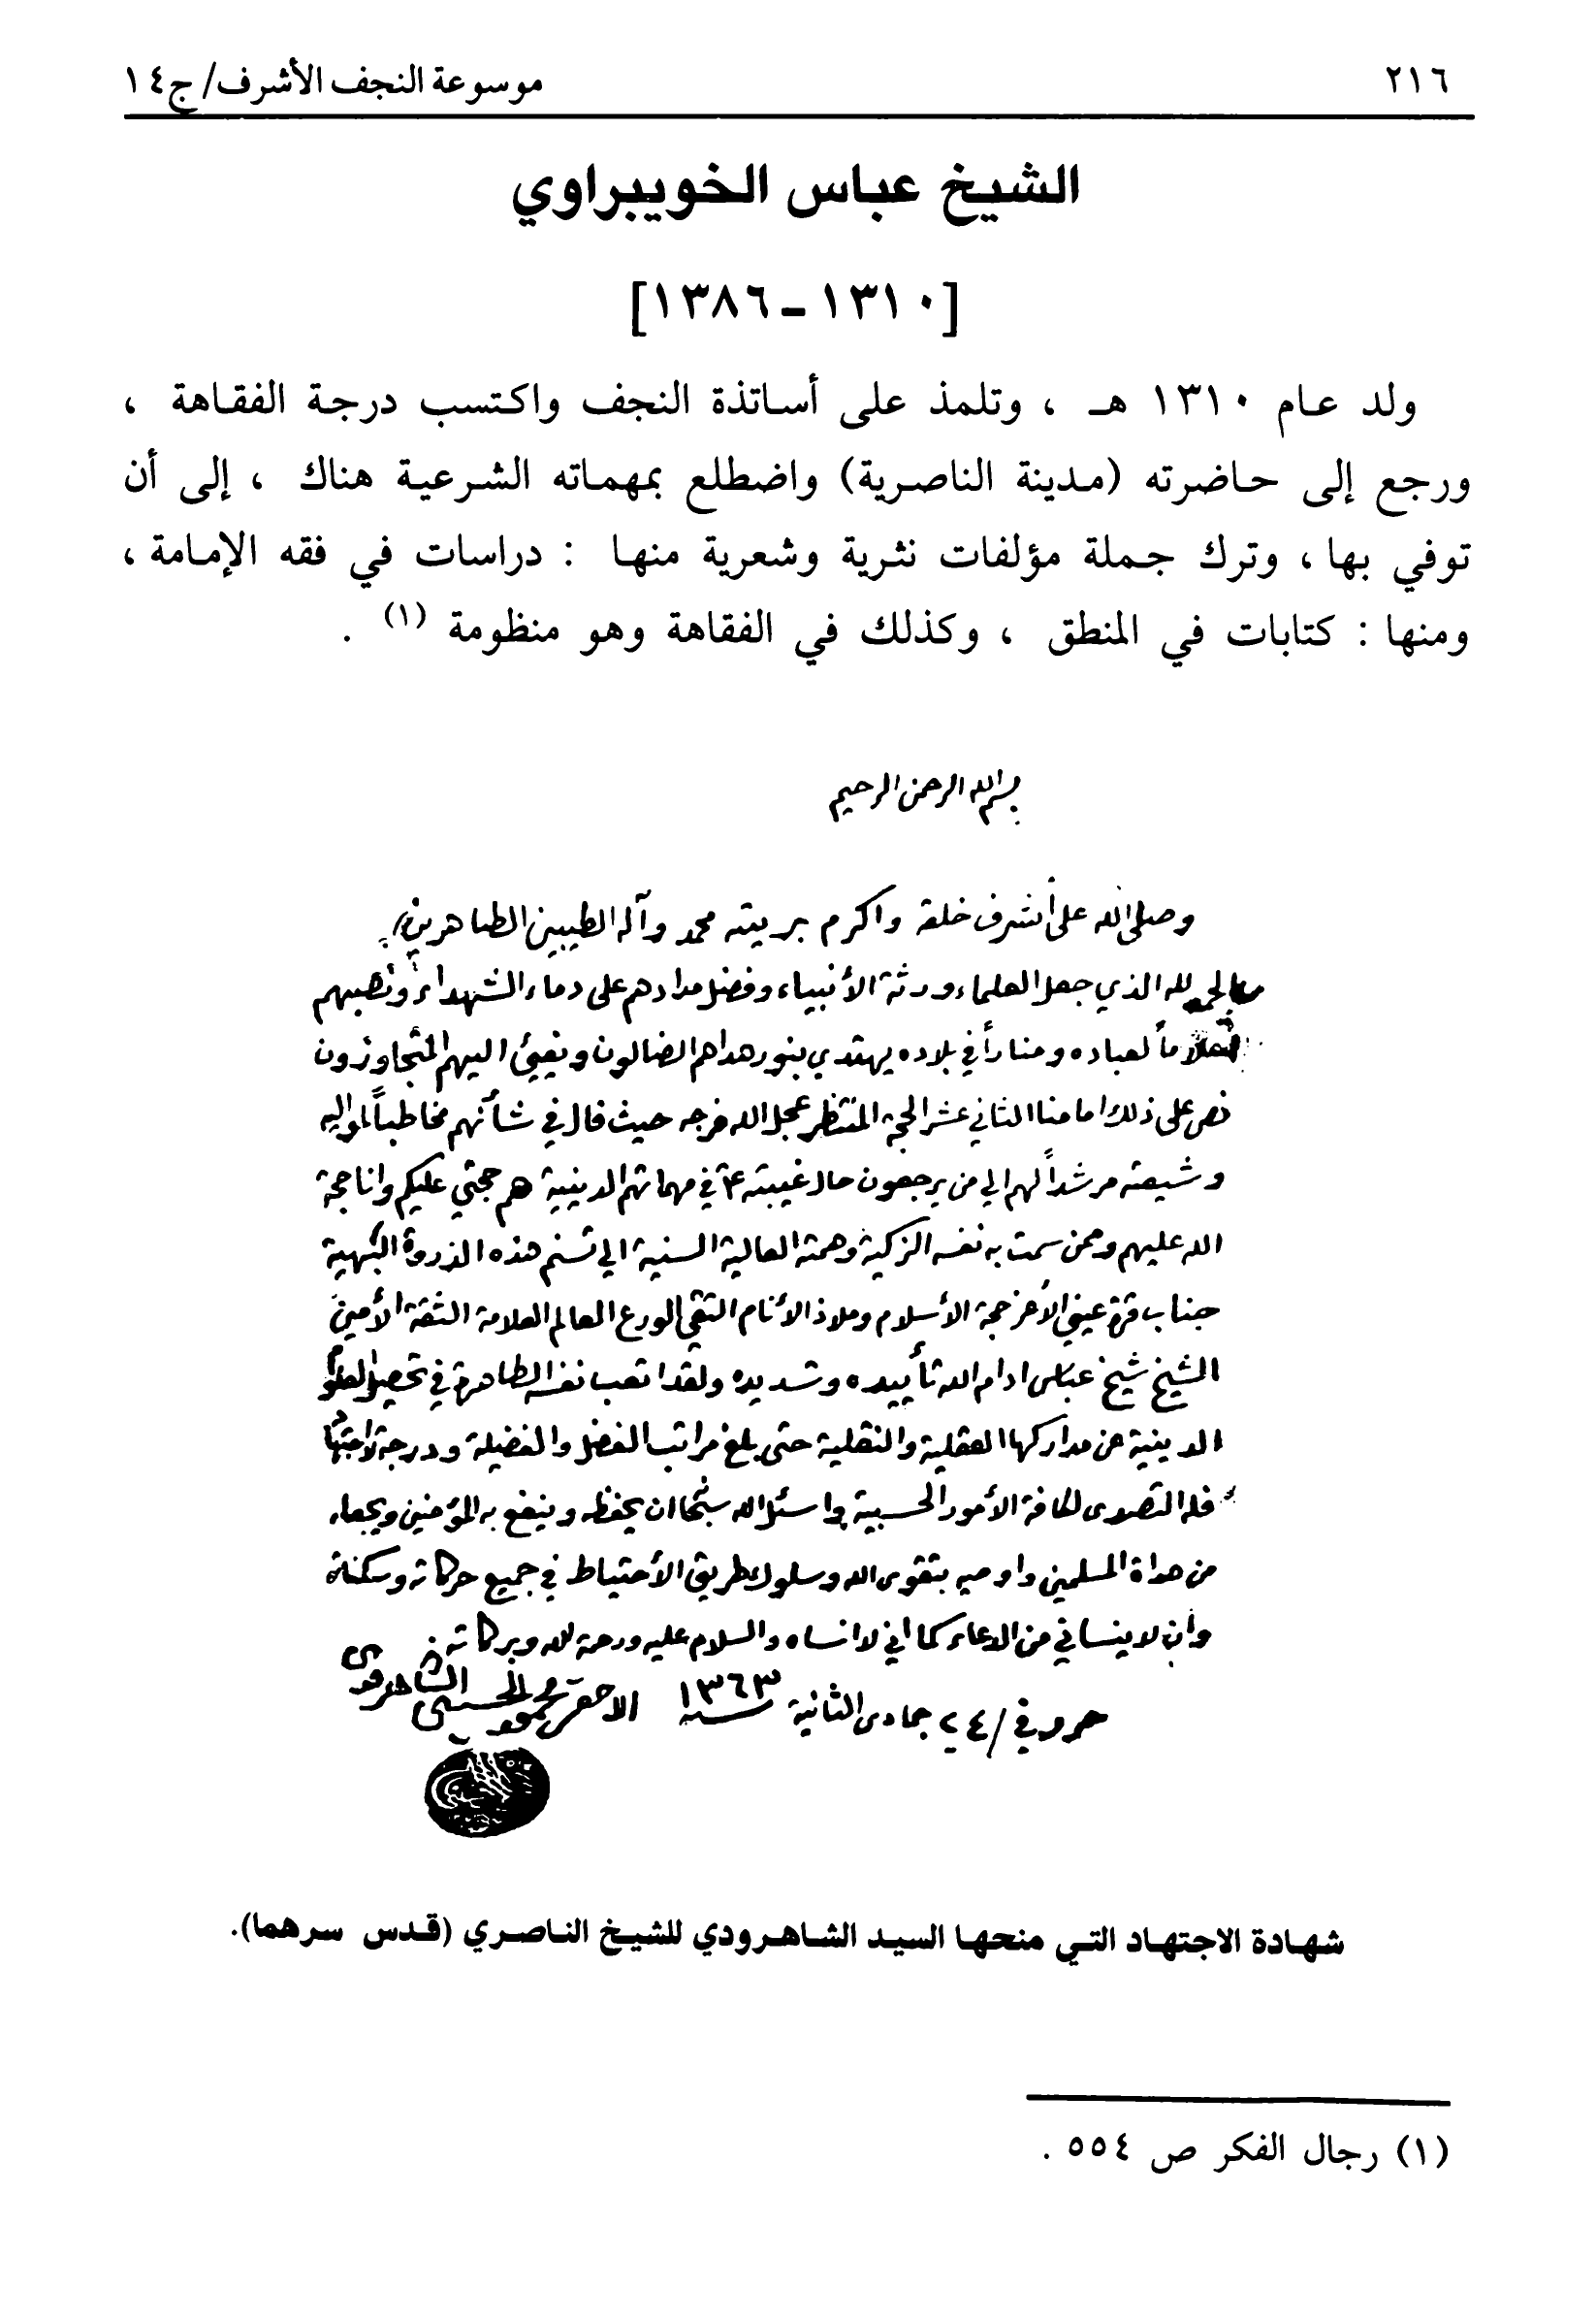 ٢١٦
موسوعة النجف الأشرف/ ج١٤
الشيخ عباس الخويبراوي
[١٣١٠ - ١٣٨٦]
ولد عام ١٣١٠ هـ ، وتلمذ على أساتذة النجف واكتسب درجة الفقاهة ،
ورجع إلى حاضرته (مدينة الناصرية) واضطلع بمهماته الشرعية هناك ، إلى أن
توفي بها ، وترك جملة مؤلفات نثرية وشعرية منها : دراسات في فقه الإمامة ،
ومنها : كتابات في المنطق ، وكذلك في الفقاهة وهو منظومة (١) .
بسم الله الرحمن الرحيم
وصلى الله على أشرف خلقه واكرم بريته محمد وآله الطيبين الطاهرين
الحمد لله الذي جعل العلماء ورثة الأنبياء وفضل مدادهم على دماء الشهداء ونصبهم
لعباده ومناراً في بلاده يهتدي بنور هداهم الضالون ويفيئ اليهم المتجاوزون
نص على ذلك امامنا الثاني عشر الحجة المنتظر عجل الله فرجه حيث قال في شأنهم مخاطباً لمواليه
وشيعته مرشداً لهم الي من يرجعون حال غيبته في مهماتهم الدينية هم حجتي عليكم وانا حجة
الله عليهم وممن سمت به نفسه الزكية وهمته العالية السنية الي تسنم هذه الذروة البهية
جناب قرة عيني الأعز حجة الأسلام وملاذ الأنام التقي الورع العالم العلامة الثقة الأمين
الشيخ شيخ عباس ادام الله تأييده وتسديده ولقد اتعب نفسه الطاهرة في تحصيل العلوم
الدينية من مداركها العقلية والنقلية حتى بلغ مراتب الفضل والفضيلة ودرجة الاجتهاد
فله التصدى لكافة الأمور الحسبية واسئل الله سبحانه ان يحفظه وينفع به المؤمنين ويجعله
من هداة المسلمين واوصيه بتقوى الله وسلوك طريق الأحتياط في جميع حركاته وسكناته
وان لا ينساني من الدعاء كما اني لا انساه والسلام عليه ورحمة الله وبركاته
حرر في / ٢٤ جمادى الثانية سنة ١٣٦٣ الاحقر محمود الحسيني الشاهرودي
شهادة الاجتهاد التي منحها السيد الشاهرودي للشيخ الناصري (قدس سرهما).
(١) رجال الفكر ص ٥٥٤ .